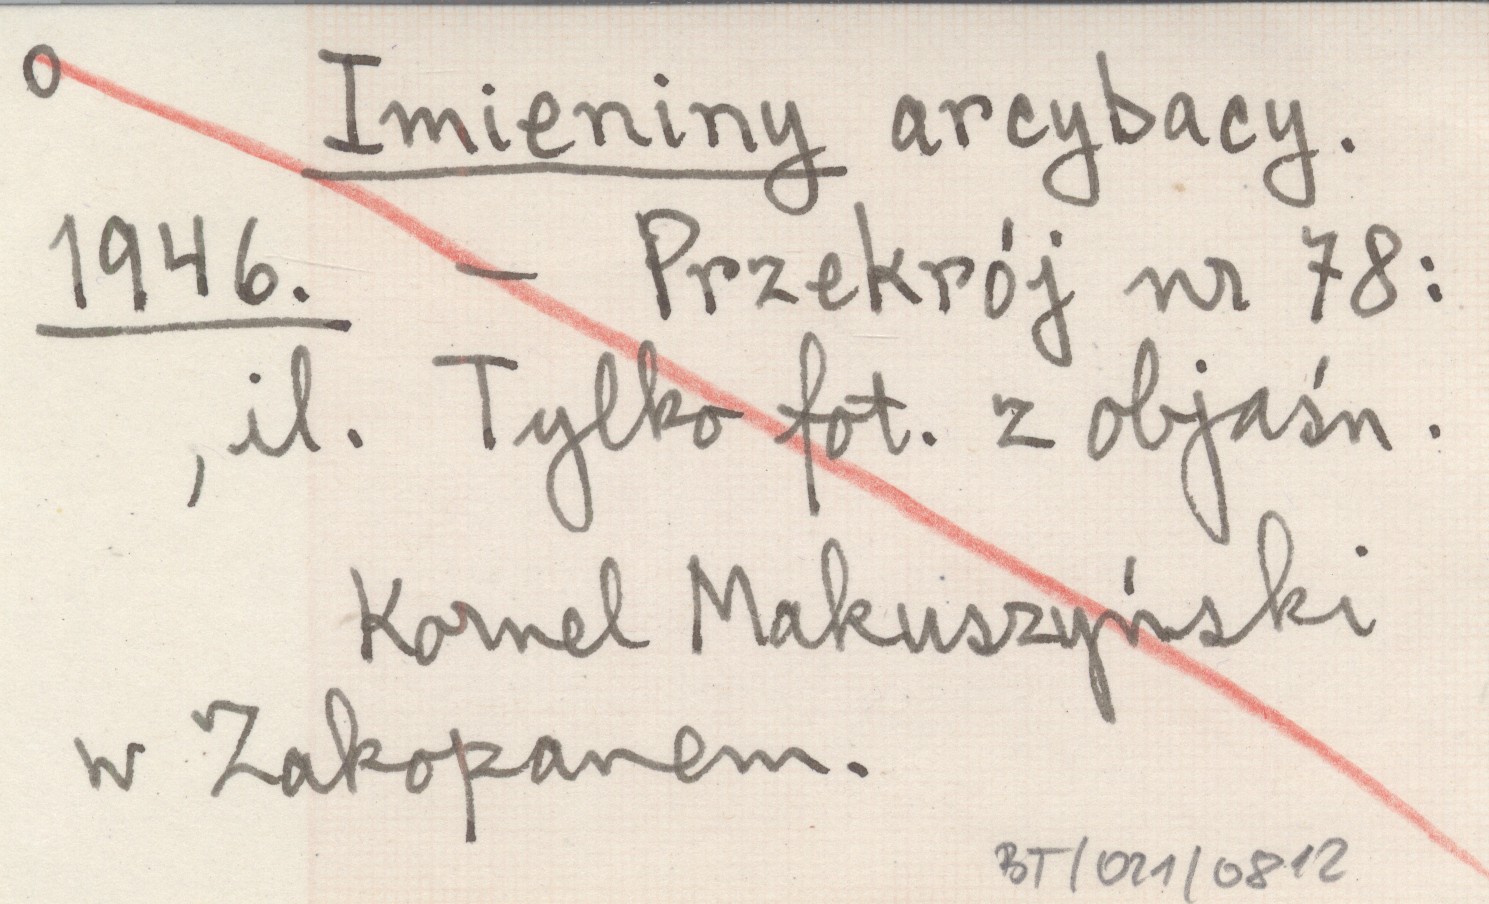 o Imieniny arcybacy.
1946. – Przekrój nr 78:
, il. Tylko fot. z objaśn.
Kornel Makuszyński
w Zakopanem.
BT/021/0812